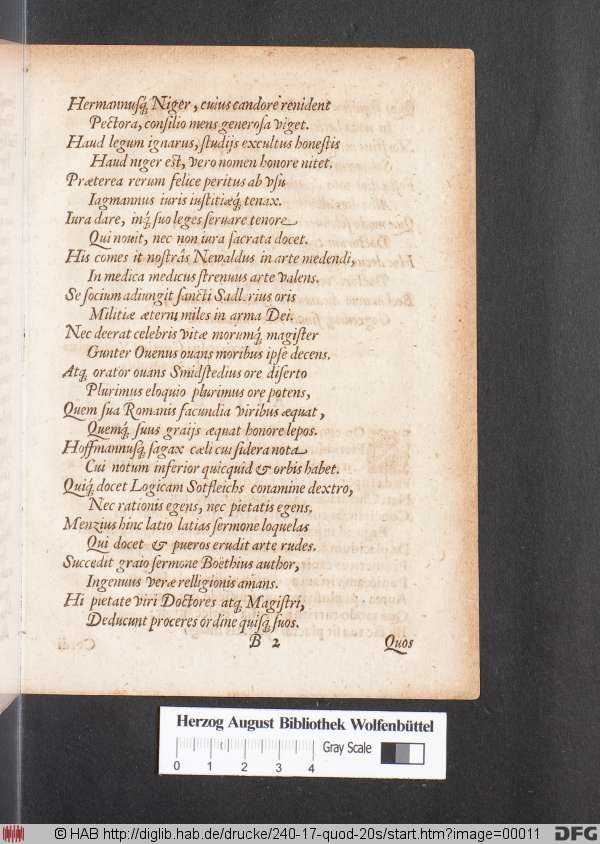 Hermannusq́; Niger, cuius candore renident
Pectora, consilio mens generosa viget.
Haud legum ignarus, studijs excultus honestis
Haud niger est, vero nomen honore nitet.
Præterea rerum felice peritus ab vsu
Iagmannus iuris iustitiæq́; tenax.
Iura dare, inq́; suo leges seruare tenore
Qui nouit, nec non iura sacrata docet.
His comes it nostrâs Newaldus in arte medendi,
In medica medicus strenuus arte valens.
Se socium adiungit sancti Sadl rius oris
Militiæ æternę miles in arma Dei.
Nec deerat celebris vitæ morumq́; magister
Gunter Ouenus ouans moribus ipse decens.
Atq; orator ouans Smidstedius ore diserto
Plurimus eloquio plurimus ore potens,
Quem sua Romanis facundia viribus æquat,
Quemq́; suus graijs æquat honore lepos.
Hoffmannusq́; sagax cæli cui sidera nota
Cui notum inferior quicquid & orbis habet.
Quiq́; docet Logicam Sotfleichs conamine dextro,
Nec rationis egens, nec pietatis egens.
Menzius hinc latio latias sermone loquelas
Qui docet & pueros erudit arte rudes.
Succedit graio sermone Boëthius author,
Ingenuus veræ relligionis amans.
Hi pietate viri Doctores atq; Magistri,
Deducunt proceres ordine quisq; suos.
B 2 Quos
Herzog August Bibliothek Wolfenbüttel
Gray Scale
0 1 2 3 4
© HAB http://diglib.hab.de/drucke/240-17-quod-20s/start.htm?image=00011
DFG